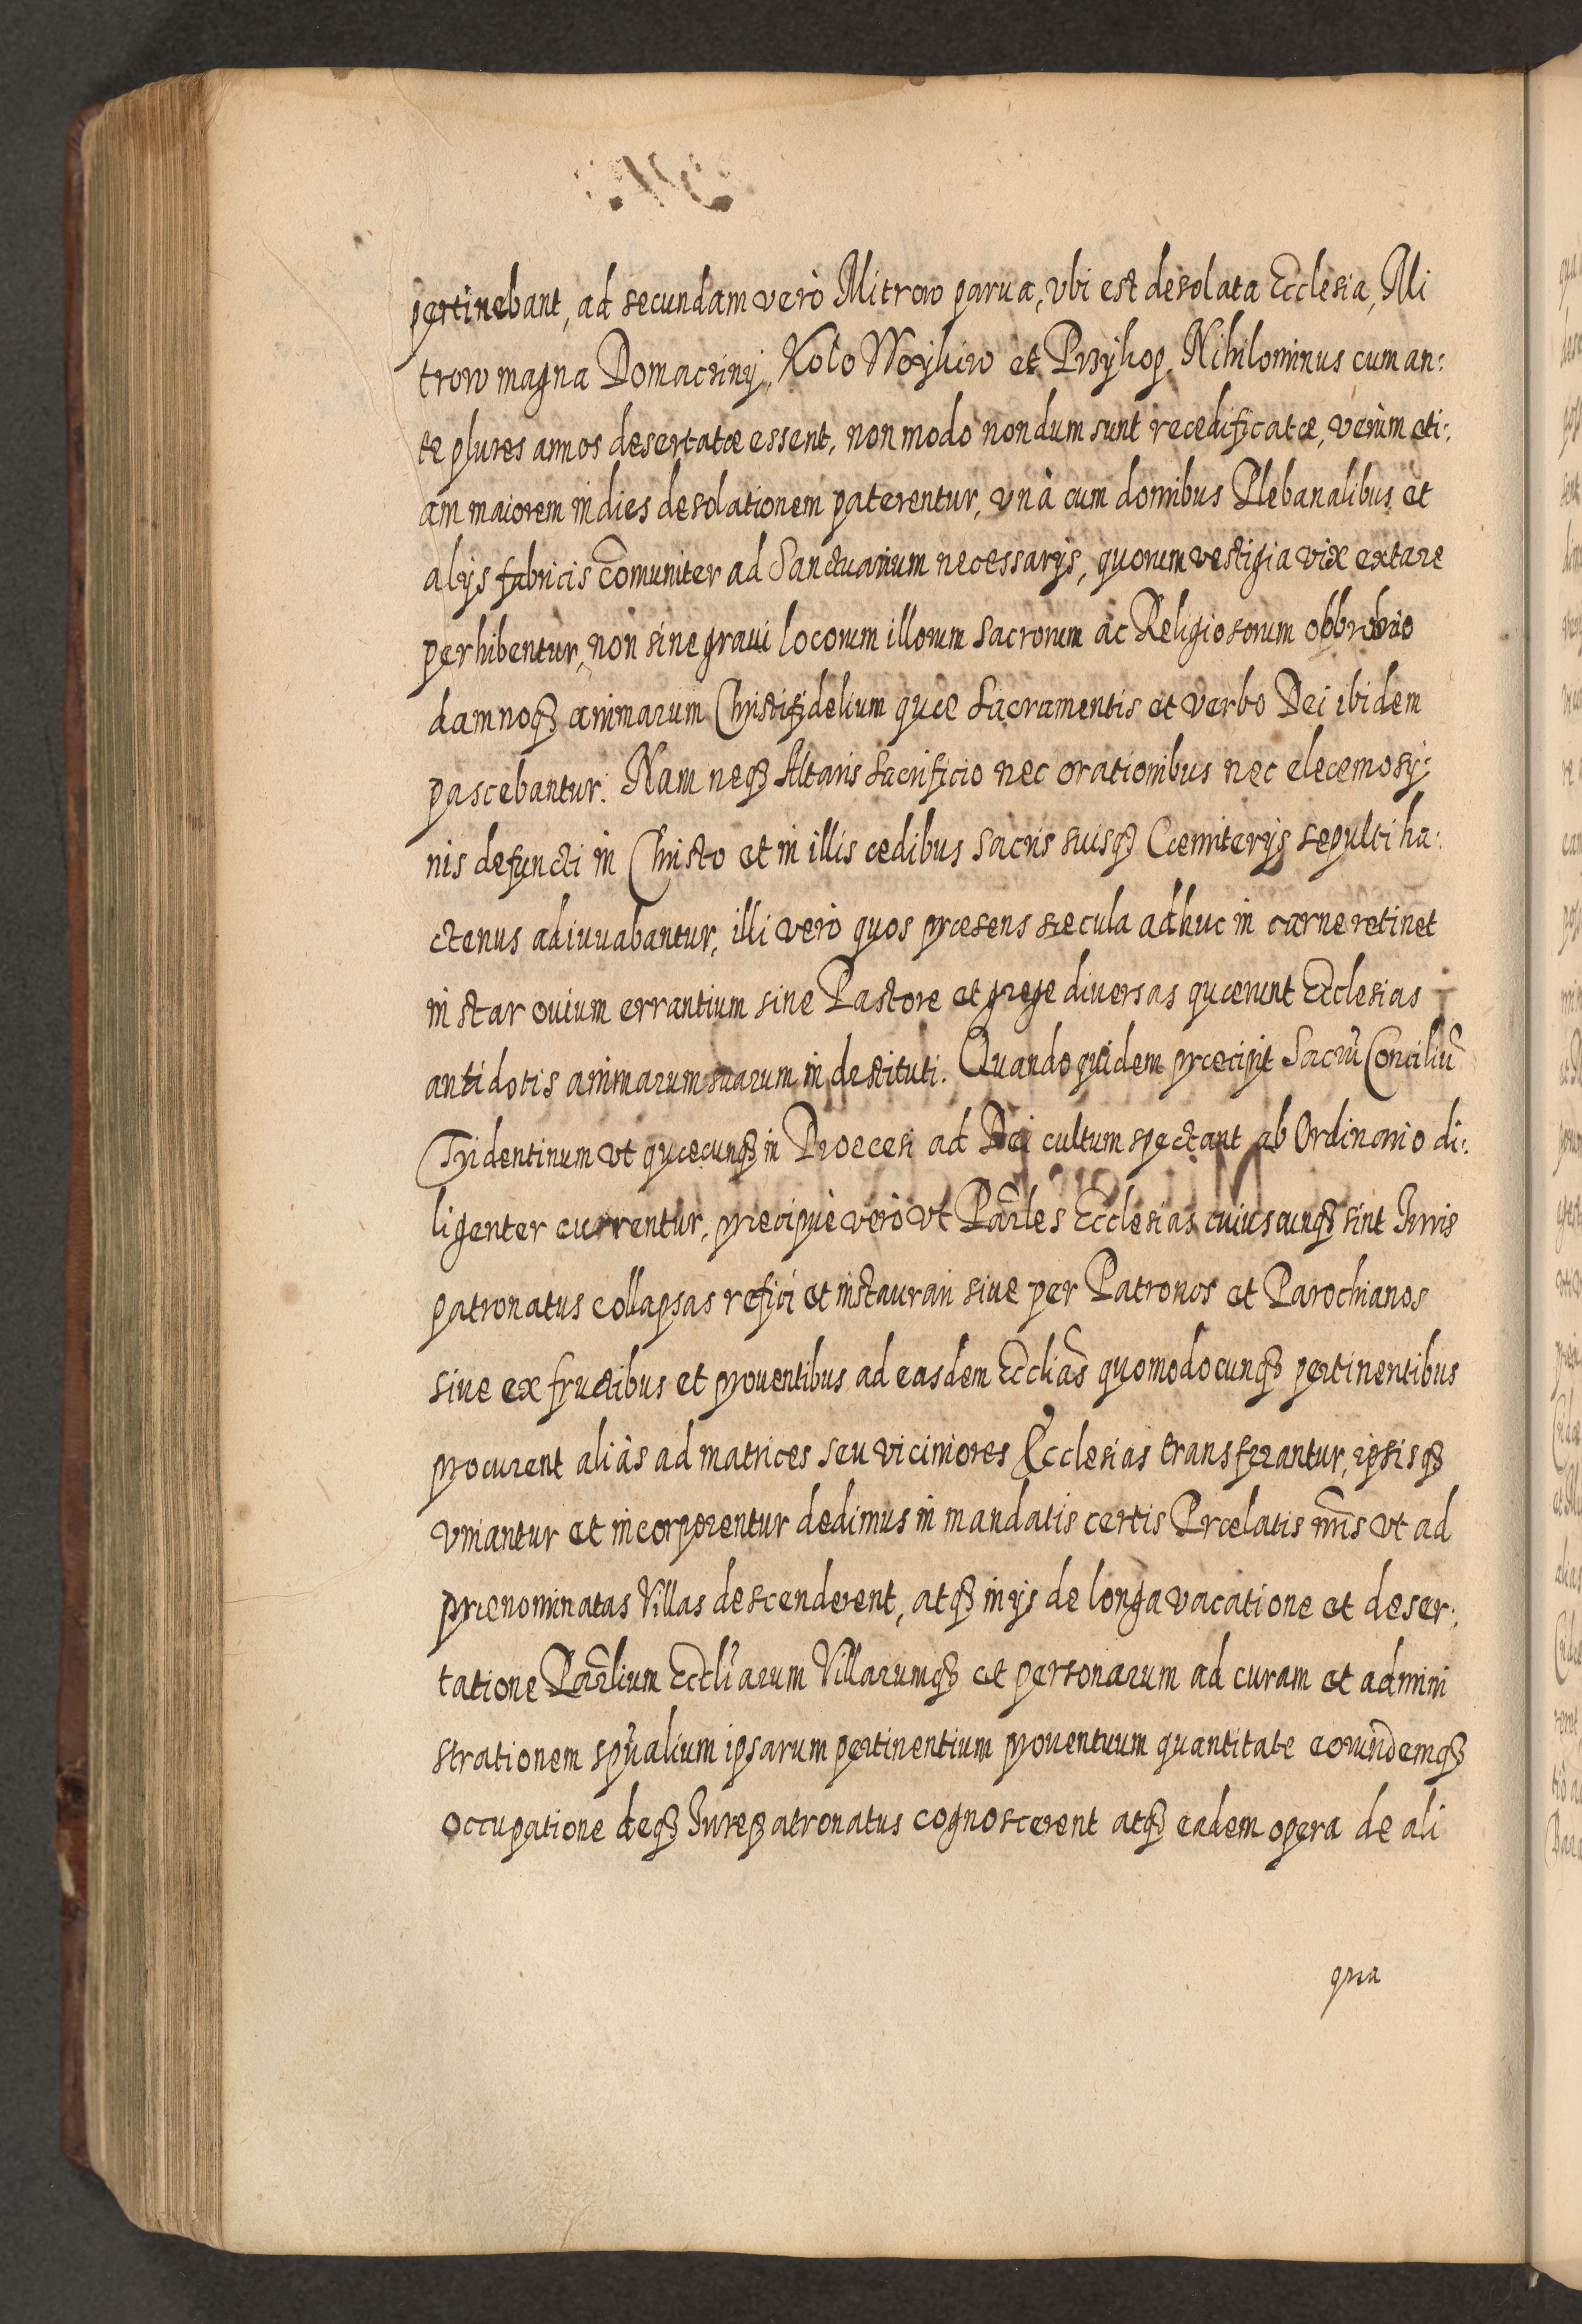 pertinebant, ad secundam verò Mitrow parua, vbi est desolata Ecclesia, Mi
trow magna Domacziny, Koło Woykiw et Przykop. Nihilominus cum an:
te plures annos desertatæ essent, non modo nondum sunt reædificatæ, verùm eti:
am maiorem in dies desolationem paterentur, vnà cum domibus Plebanalibus et
alijs fabricis com̄uniter ad Sanctuarium necessarijs, quorum vestigia vix extare
perhibentur, non sine graui locorum illorum Sacrorum ac Religiosorum obbrobrio
damnoq3 animarum Christifidelium quæ Sacramentis et verbo Dei ibidem
pascebantur. Nam neq3 Altaris Sacrificio nec orationibus nec eleemosy:
nis defuncti in Christo et in illis ædibus Sacris suisq3 Cæmiterijs sepulti ha:
ctenus adiuvabantur, illi verò quos præsens sæcula adhuc in carne retinet
instar ouium errantium sine Pastore et grege diuersas quærunt Ecclesias
antidotis animarum suarum indestituti. Quandoquidem præcipit Sacrū Conciliū
Tridentinum vt quæcunq3 in Diœcesi ad Dei cultum spectant ab Ordinario di:
ligenter currentur, præcipuè verò vt Par̄les Ecclesias cuiuscunq3 sint Iurris
patronatus collapsas refici et instaurari siue per Patronos et Parochianos
siue ex fructibus et prouentibus ad easdem Eccli̅as quomodocunq3 pertinentibus
procurent aliàs ad matrices seu viciniores Ecclesias transferantur, ipsisq3
vniantur et incorporentur dedimus in mandatis certis Prælatis nr̄is vt ad
prænominatas Villas descenderent, atq3 in ijs de longa vacatione et deser:
tatione Par̄lium Eccli̅arum Villarumq3 et personarum ad curam et admini
strationem spūalium ipsarum pertinentium prouentuum quantitate eorundemq3
occupatione deq3 Iurepatronatus cognoscerent atq3 eadem opera de ali
qua